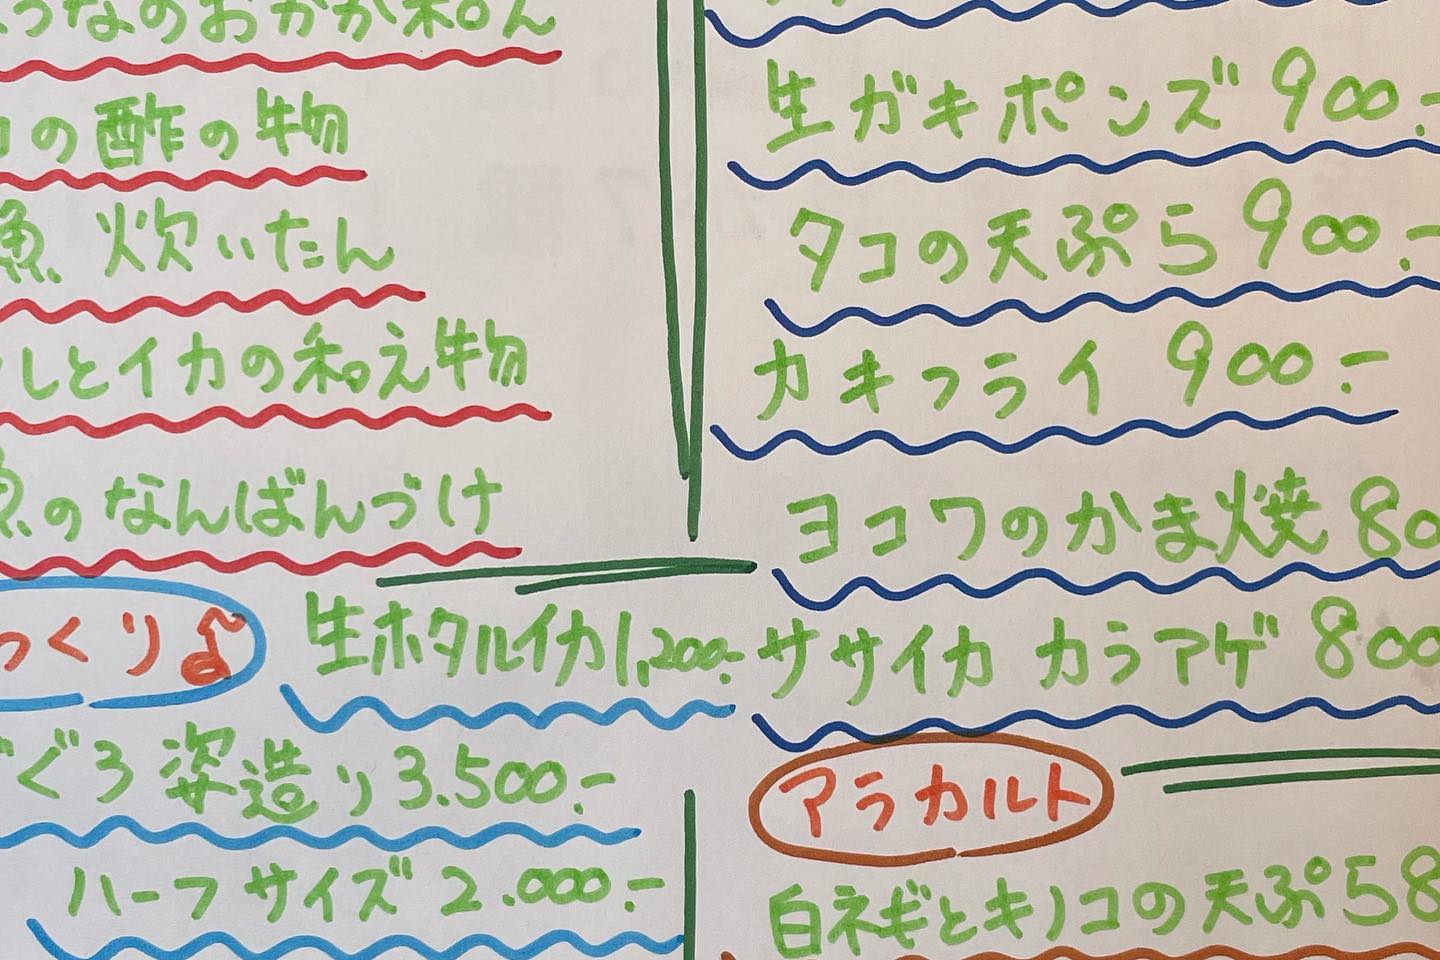 なのおかか和え
の酢の物
魚 炊いたん
しとイカの和え物
魚のなんばんづけ
っくり♪
生ホタルイカ 1,200.-
ぐろ姿造り 3.500.-
ハーフサイズ 2.000.-
生ガキポンズ 900.-
タコの天ぷら 900.-
カキフライ 900.-
ヨコワのかま焼 80
ササイカ カラアゲ 800
アラカルト
白ネギとキノコの天ぷら 58